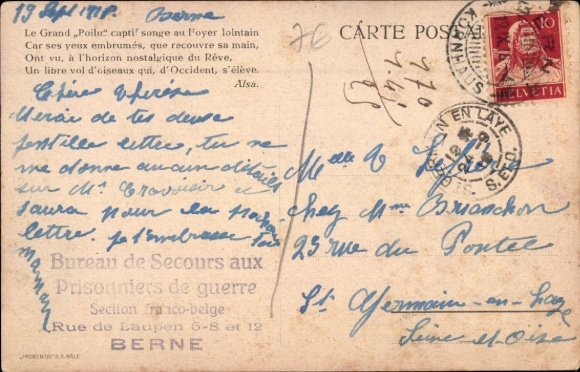 19 Sept 1918. Berne
Le Grand „Poilu" captif songe au Foyer lointain
Car ses yeux embrumés, que recouvre sa main,
Ont vu, à l'horizon nostalgique du Rêve,
Un libre vol d'oiseaux qui, d'Occident, s'élève.
Alsa.
Chère Thérèse
Merci de tes deux
petite lettre, tu ne
me donne aucun détails
sur Mr
saura pour la
lettre. je t'embrasse
maman
Bureau de Secours aux
Prisonniers de guerre
Section franco-belge
Rue de Laupen 5-8 et 12
BERNE
76
CARTE POSTALE
170
1.45
10
HELVETIA
KORNHAUS
ST GERMAIN EN LAYE
S.ET.O.
Melle T.
chez Mme Brianchon
25 rue du Pontel
St Germain-en-Laye
Seine et Oise